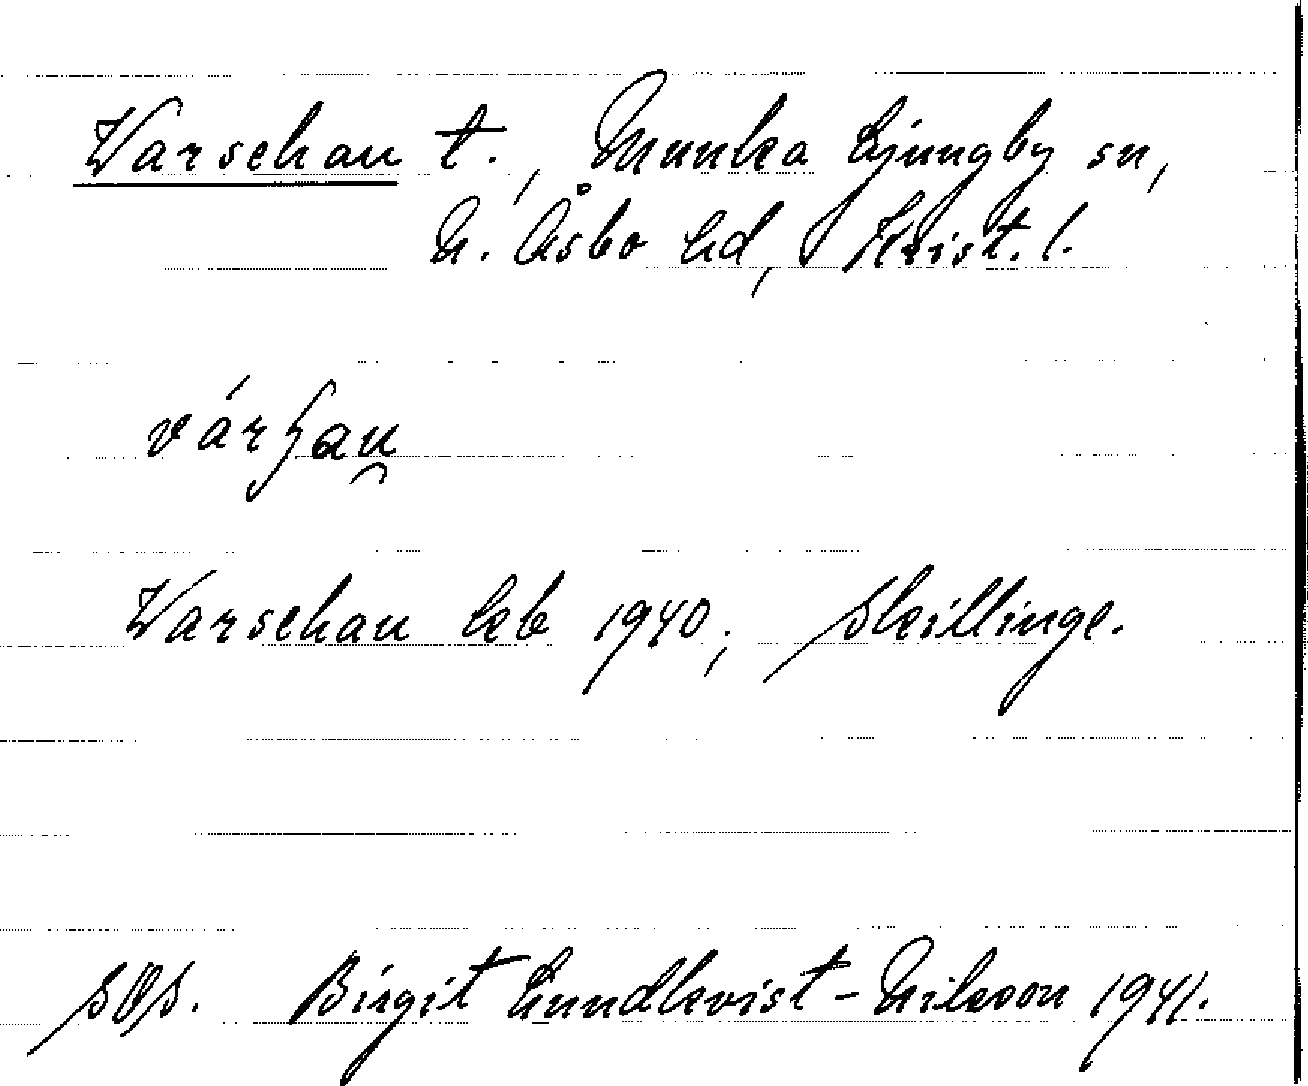 Warschau t., Munka Ljungby sn,
N. Åsbo hd, Krist. l.
várʃau̯
Warschau kb 1940, Skillinge.
Birgit Lundkvist-Nilsson 1941.